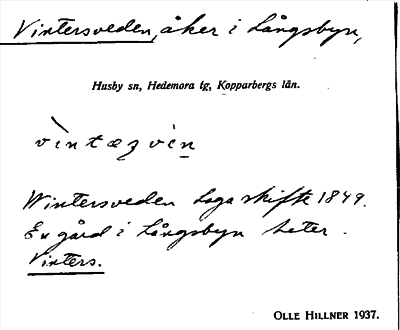 Vintersveden, åker i Långsbyn,
Husby sn, Hedemora tg, Kopparbergs län.
vìntæʒvèn
Wintersveden Laga skifte 1849.
En gård i Långsbyn heter
Vinters.
OLLE HILLNER 1937.